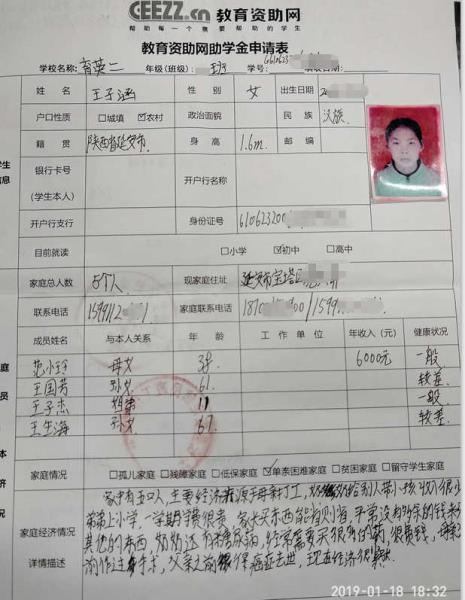 GEEZZ.cn 教育资助网
帮助每一个需要帮助的学生
教育资助网助学金申请表
学校名称: 育英二 年级(班级): 班 学号: 610623
姓名 王子涵 性别 女 出生日期
户口性质 □城填 ☑农村 政治面貌 民族 汉族
籍贯 陕西省延安市 身高 1.6m 邮编
学生
信息
银行卡号
(学生本人) 开户行名称
开户行支行 身份证号 610623200
目前就读 □小学 ☑初中 □高中
家庭总人数 5个人 现家庭住址 延安市宝塔区
联系电话 家庭联系电话
成员姓名 与本人关系 年龄 工作单位 年收入(元) 健康状况
母女 38 6000元 一般
王国芳 孙女 61 较差
王子杰 姐弟 11 一般
王生海 孙女 67 较差
家庭情况 □孤儿家庭 □残障家庭 □低保家庭 ☑单亲困难家庭 □贫困家庭 □留守学生家庭
家庭经济情况
详情描述
家中有五口人,主要经济来源于母亲打工,给别人带小孩收入很少
弟弟上小学,一学期学费很贵,家长买东西能省则省,平常没有多余的钱来
其他的东西,奶奶还有,经常需要买很多的药,很费钱,
前作过手术,父亲之前癌症去世,现在经济很
2019-01-18 18:32